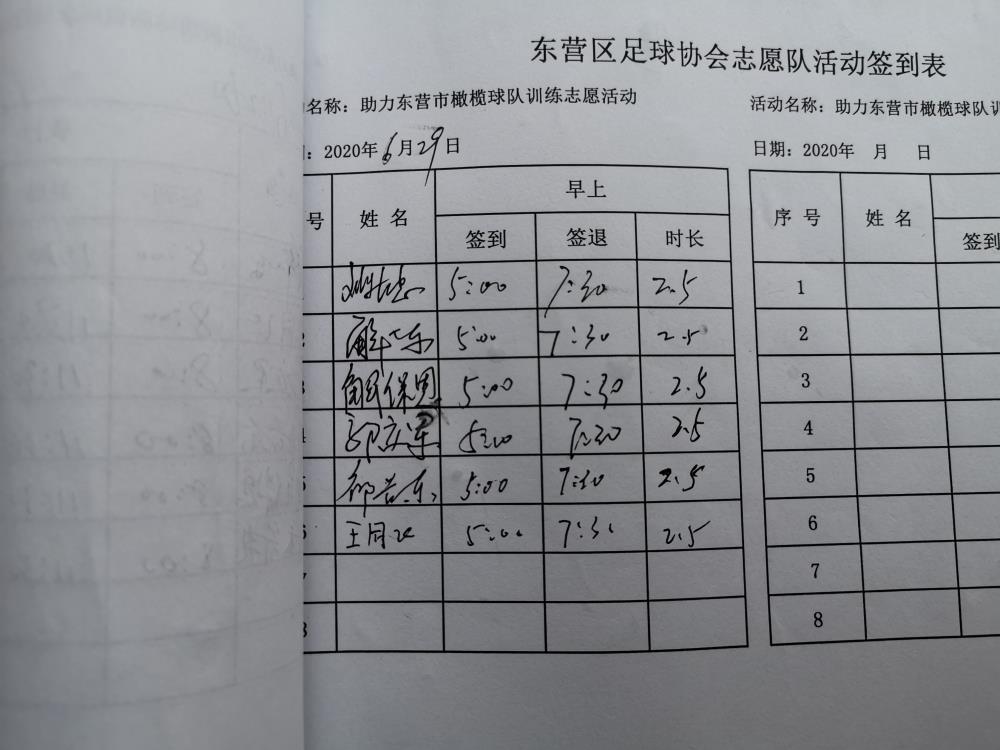 东营区足球协会志愿队活动签到表
名称：助力东营市橄榄球队训练志愿活动
活动名称：助力东营市橄榄球队训
：2020年6月29日
日期：2020年 月 日
号 姓 名 早上
签到 签退 时长
5:00 7:30 2.5
5:00 7:30 2.5
解保国 5:00 7:30 2.5
郭文军 5:00 7:30 2.5
5:00 7:30 2.5
王月 5:00 7:30 2.5
序 号 姓 名
签到
1
2
3
4
5
6
7
8